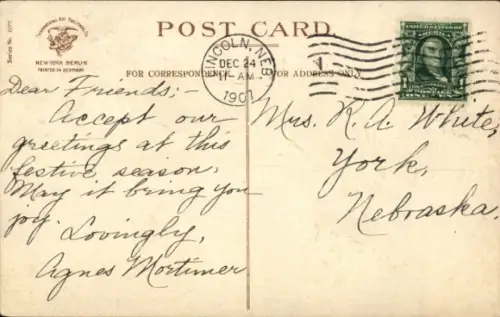 POST CARD.
NEW YORK BERLIN
PRINTED IN GERMANY
FOR CORRESPONDENCE
FOR ADDRESS ONLY
LINCOLN, NEB.
DEC 24
AM
1907
Dear Friends;-
Accept our
greetings at this
festive season.
May it bring you
joy.
Lovingly,
Agnes Mortimer
Mrs. R. A. White,
York,
Nebraska.